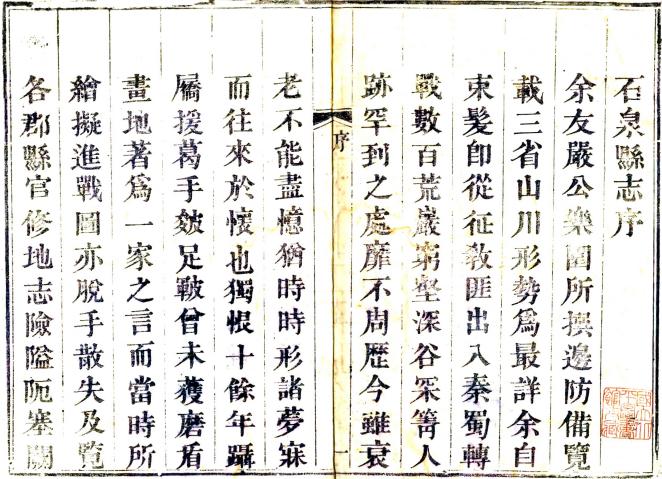 石泉縣志序
余友嚴公樂園所撰邊防備覽
載三省山川形勢爲最詳余自
束髮卽從征敎匪出入秦蜀轉
戰數百荒巖窮壑深谷罙箐人
跡罕到之處靡不周歷今雖衰
序
一
老不能盡憶猶時時形諸夢寐
而往來於懷也獨悵十餘年躡
屩援葛手皴足皸曾未獲磨盾
畫地著爲一家之言而當時所
繪擬進戰圖亦脫手散失及覽
各郡縣官修地志險隘阨塞闕